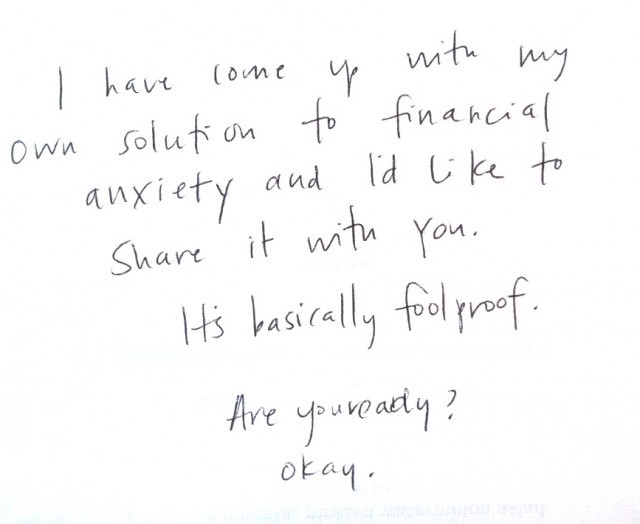 I have come up with my
own solution to financial
anxiety and I'd like to
share it with you.
It's basically foolproof.
Are you ready?
okay.